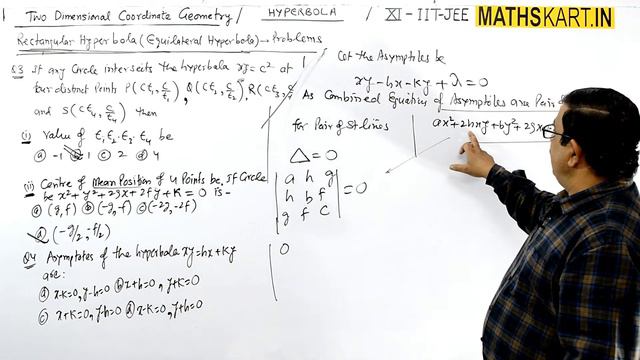 Two Dimensional Coordinate Geometry / HYPERBOLA / XI - IIT-JEE MATHSKART.IN
Rectangular Hyperbola (Equilateral Hyperbola) → Problems
Q.3 If any Circle intersects the hyperbola xy = c² at
four distinct Points P(ct₁, c/t₁), Q(ct₂, c/t₂), R(ct₃,
and S(ct₄, c/t₄) then
(i) Value of t₁ t₂ t₃ t₄ be
(a) -1 (b) 1 (c) 2 (d) 4
(ii) Centre of Mean Position of 4 Points be, If Circle
be x² + y² + 2gx + 2fy + K = 0 is -
(a) (g, f) (b) (-g, -f) (c) (-2g, -2f)
(d) (-g/2, -f/2)
Q4 Asymptotes of the hyperbola xy = hx + ky
are:
(a) x-k=0, y-h=0 (b) x+h=0, y+k=0
(c) x+k=0, y-h=0 (d) x-k=0, y+h=0
Let the Asymptotes be
xy - hx - ky + λ = 0
As Combined Equation of Asymptotes are Pair of
ax² + 2hxy + by² + 2gx
for Pair of St lines
△ = 0
| a h g |
| h b f | = 0
| g f c |
0